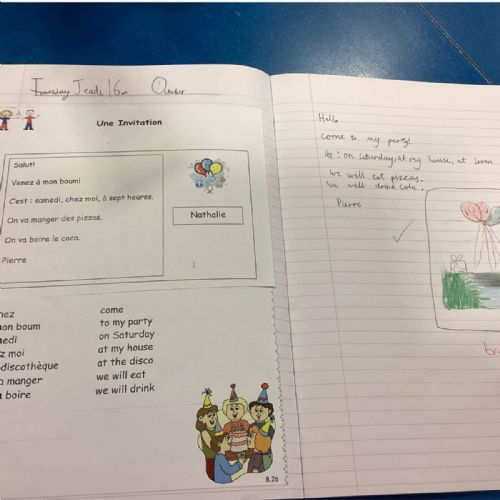 Jeudi 16 October
Une Invitation
Salut!
Venez à mon boum!
C'est : samedi, chez moi, à sept heures.
On va manger des pizzas.
On va boire le coca.
Pierre
Nathalie
come
mon boum to my party
on Saturday
moi at my house
discothèque at the disco
manger we will eat
boire we will drink
8.26
Hello
come to my party!
its : on saturday, at my house, at seven
we will eat pizzas.
we will drink cola.
Pierre